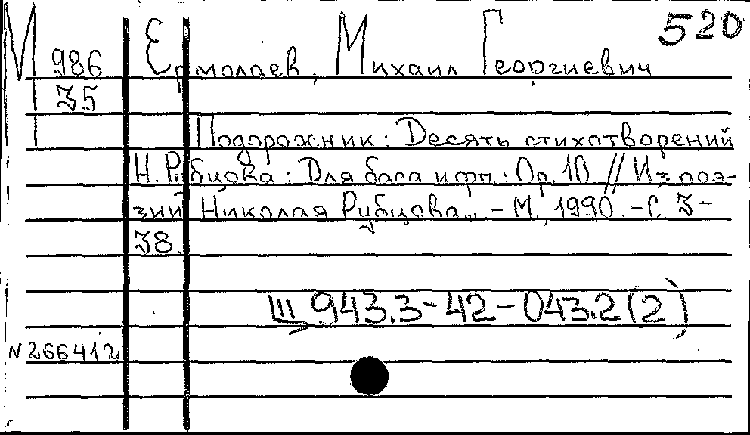 520
М 986 Ермолаев, Михаил Георгиевич
35
Подорожник: Десять стихотворений
Н. Рубцова: Для баса и фп.: Ор. 10 // Из поэ-
зии Николая Рубцова. - М., 1990. - С. 3-
38.
Ш 943.3-42-043.2(2)
N266412